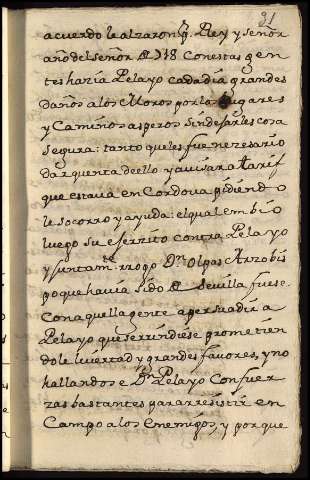 31
acuerdo le alzaron p. Rey y señor
año del señor de 718 Con estas gen
tes hazia Pelayo cada dia grandes
daños a los Moros por los lugares
y Caminos asperos sin dejarles cosa
segura: tanto que les fue nezesario
dar quenta de ello y avisar a tarif
que estava en Cordova pidiendo
le socorro y ayuda: el qual embio
luego su exerzito contra Pelayo
y juntamte rogo Dn Olpas Arzobis
po que havia sido de Sevilla fuese
Con aquella gente a persuadir a
Pelayo que se rrindiese prometien
dole livertad y grandes favores, y no
hallandose Dn Pelayo Con fuer
zas bastantes para rresistir en
Campo a los Enemigos, y porque